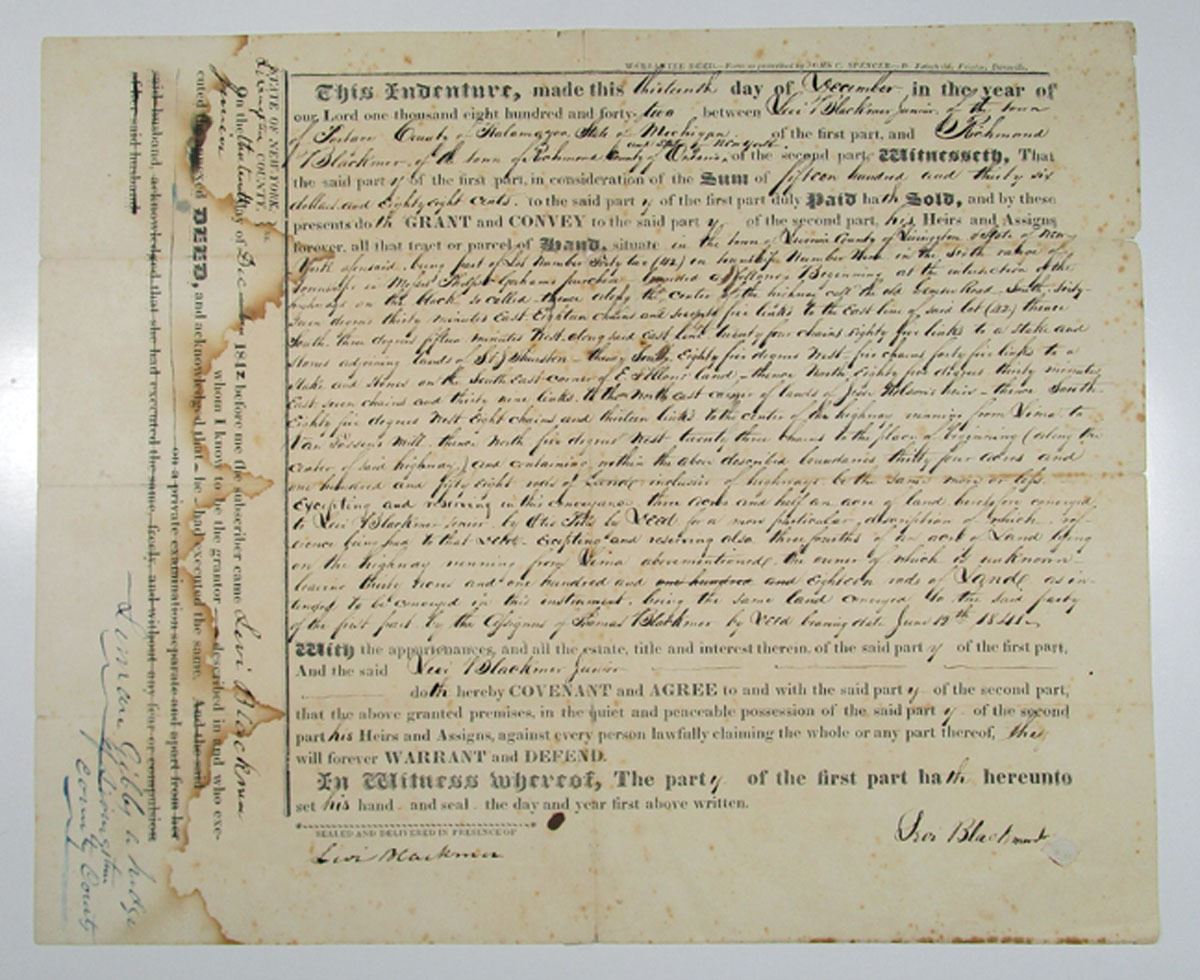 WARRANTEE DEED.—Form as prescribed by JOHN C. SPENCER—D. Fairchild, Printer, Dansville.
This Indenture, made this thirteenth day of December in the year of
our Lord one thousand eight hundred and forty-two between Levi Blackmer Junior of the town
of County of Kalamazoo State of Michigan of the first part, and Richmond
and State of New York
Blackmer of the town of Richmond County of Ontario, of the second part, Witnesseth, That
the said party of the first part, in consideration of the Sum of fifteen hundred and thirty six
dollars and Eighty eight cents. to the said party of the first part duly Paid hath Sold, and by these
presents doth GRANT and CONVEY to the said party of the second part, his Heirs and Assigns
forever, all that tract or parcel of Land, situate in the town of County of Livingston & State of New
York aforesaid being part of Lot Number Sixty two (42) in township Number in the Sixth range of
Townships in purchase bounded as follows Beginning at the intersection of the
on the block so called thence along the center of the highway South Sixty-
Seven degrees thirty minutes East Eighteen chains and five links to the East line of said lot (42) thence
South three degrees fifteen minutes West along said East line twenty four chains Eighty five links to a stake and
Stones adjoining lands of thence South Eighty five degrees West five chains forty five links to a
Stake and Stones on the South East corner of land, thence North Eighty five degrees thirty minutes
East seven chains and thirty nine links to the North east corner of lands of heirs thence South
Eighty five degrees West Eight chains and thirteen links to the center of the highway running from Lima to
Mill thence North five degrees West twenty three chains to the place of beginning (along the
center of said highway) and containing within the above described boundaries thirty four acres and
one hundred and fifty Eight rods of Lands inclusive of highways be the same more or less.
Excepting and reserving in this conveyance three acres and half an acre of land heretofore conveyed
to Levi Blackmer senior by by Deed for a more particular description of which ref-
erence being had to that Deed. Excepting and reserving also three fourths of an acre of Land lying
on the highway running from Lima abovementioned the owner of which is unknown
leaving thirty acres and one hundred and one hundred and Eighteen rods of Lands as in-
tended to be conveyed in this instrument. being the same land conveyed to the said party
of the first part by the Assignees of Thomas Blackmer by Deed bearing date June 19th 1841
With the appurtenances, and all the estate, title and interest therein, of the said party of the first part,
And the said Levi Blackmer Junior
doth hereby COVENANT and AGREE to and with the said party of the second part,
that the above granted premises, in the quiet and peaceable possession of the said party of the second
part his Heirs and Assigns, against every person lawfully claiming the whole or any part thereof, he
will forever WARRANT and DEFEND.
In Witness whereof, The party of the first part hath hereunto
set his hand and seal the day and year first above written.
SEALED AND DELIVERED IN PRESENCE OF
Levi Blackmer
Levi Blackmer
STATE OF NEW-YORK, ss.
Livingston COUNTY.
On the thirteenth day of December 1842 before me the subscriber came Levi Blackmer
Junior whom I know to be the grantor described in and who exe-
cuted the annexed DEED, and acknowledged that he had executed the same. And the said
on a private examination separate and apart from her
said husband, acknowledged that she had executed the same freely, and without any fear or compulsion
of her said husband.
Judge
of Livingston
County Courts